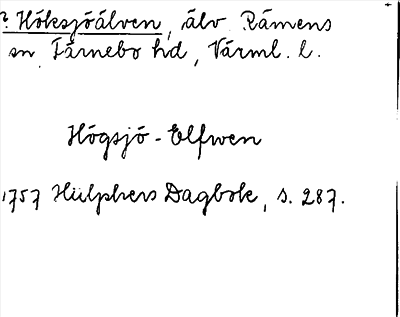 ? Höksjöälven, älv Rämens
sn, Färnebo hd, Värml. l.
Högsjö-Elfwen
1757 Hülphers Dagbok, s. 287.